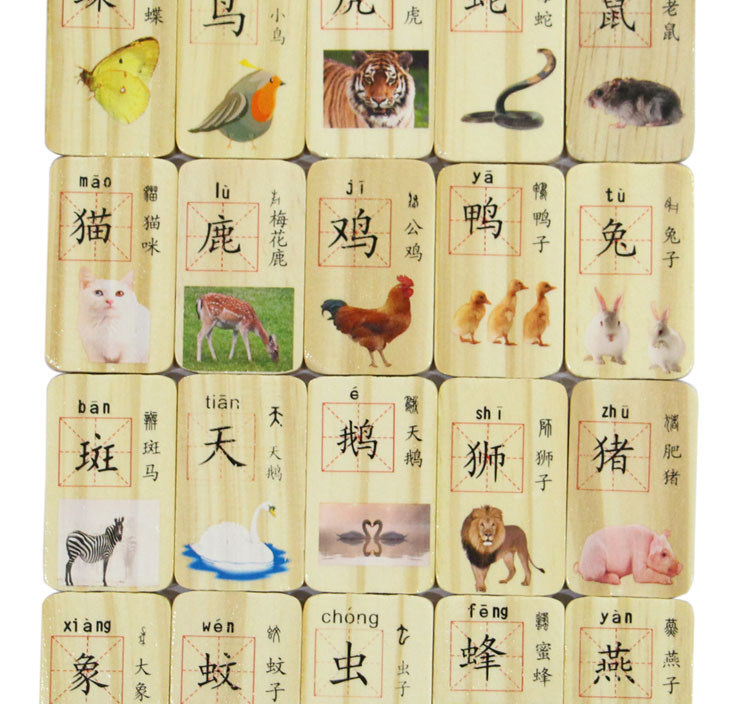 蝶
蝶
鸟
小鸟
虎
虎
蛇
蛇
鼠
老鼠
māo
猫
猫咪
lù
鹿
梅花鹿
jī
鸡
公鸡
yā
鸭
鸭子
tù
兔
兔子
bān
斑
斑马
tiān
天
天鹅
é
鹅
天鹅
shī
狮
狮子
zhū
猪
肥猪
xiàng
象
大象
wén
蚊
蚊子
chóng
虫
虫子
fēng
蜂
蜜蜂
yàn
燕
燕子